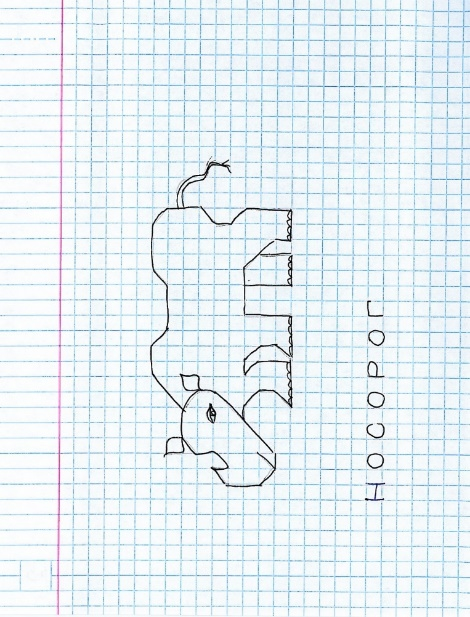 НОСОРОГ